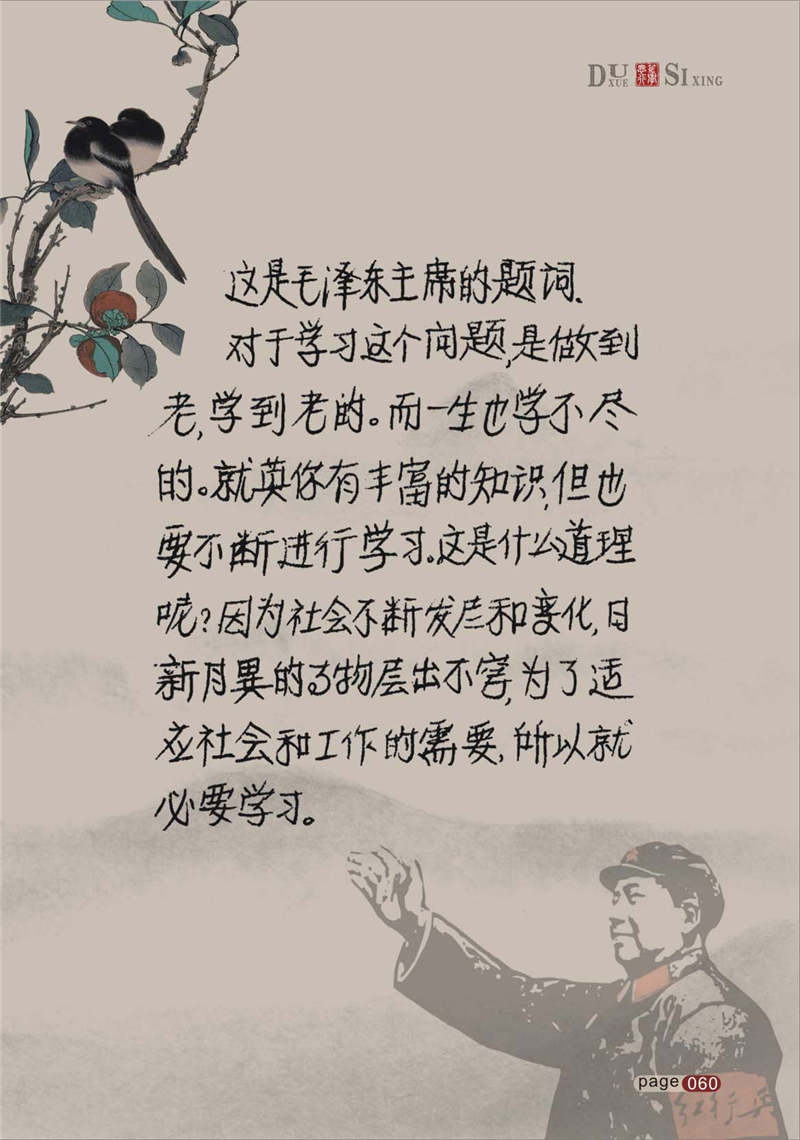 DUXUE SIXING
这是毛泽东主席的题词.
对于学习这个问题,是做到
老,学到老的。而一生也学不尽
的。就英你有丰富的知识,但也
要不断进行学习。这是什么道理
呢?因为社会不断发展和变化,日
新月異的事物层出不穷,为了适
应社会和工作的需要,所以就
必要学习。
page 060